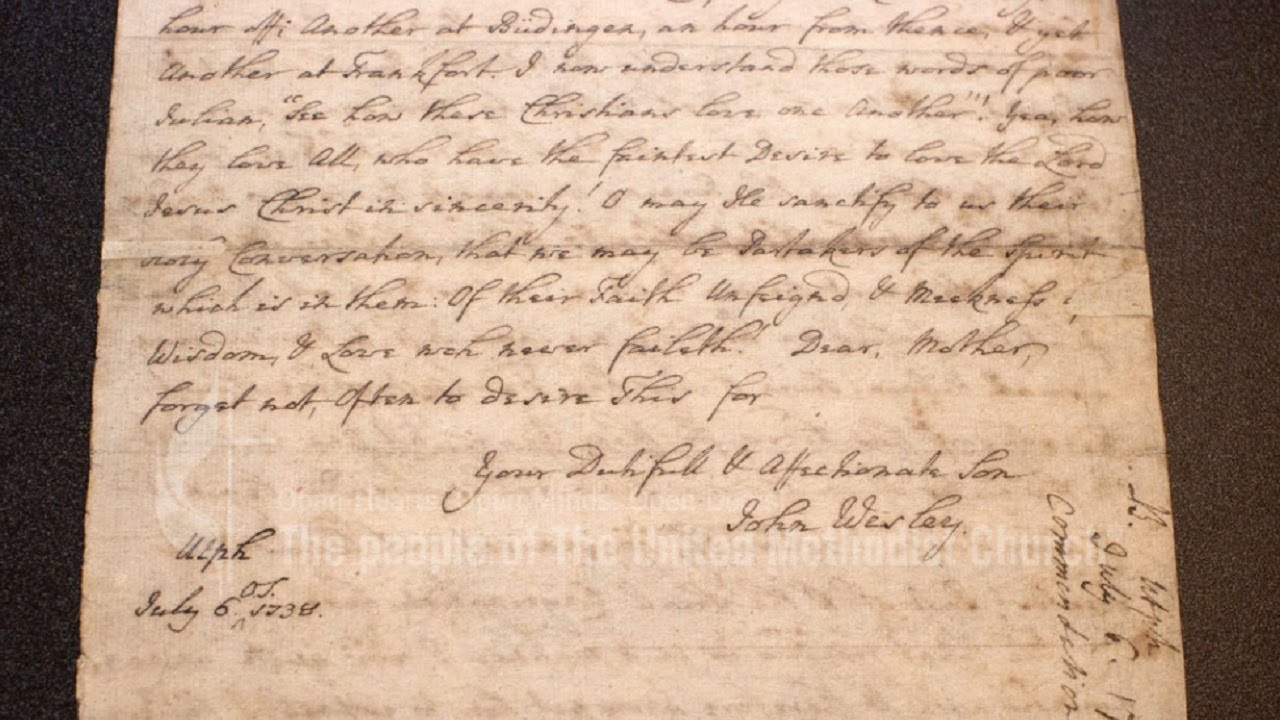 hour off; Another at Büdingen, an hour from thence, & yet
Another at Frankfort. I now understand those words of poor
Julian, "See how these Christians love one Another"! Yea, how
they love All, who have the faintest Desire to love the Lord
Jesus Christ in sincerity! O may He sanctify to us their
Holy Conversation, that we may be Partakers of the Spirit
which is in them: Of their Faith Unfeign'd, & Meekness;
Wisdom, & Love wch never faileth! Dear Mother,
forget not, Often to desire This for
Your Dutifull & Affectionate Son
John Wesley.
Utph
July 6. O.S. 1738.
Open Hearts. Open Minds. Open
The people of The United Methodist Church
Utph
July 6. 17
Commendation